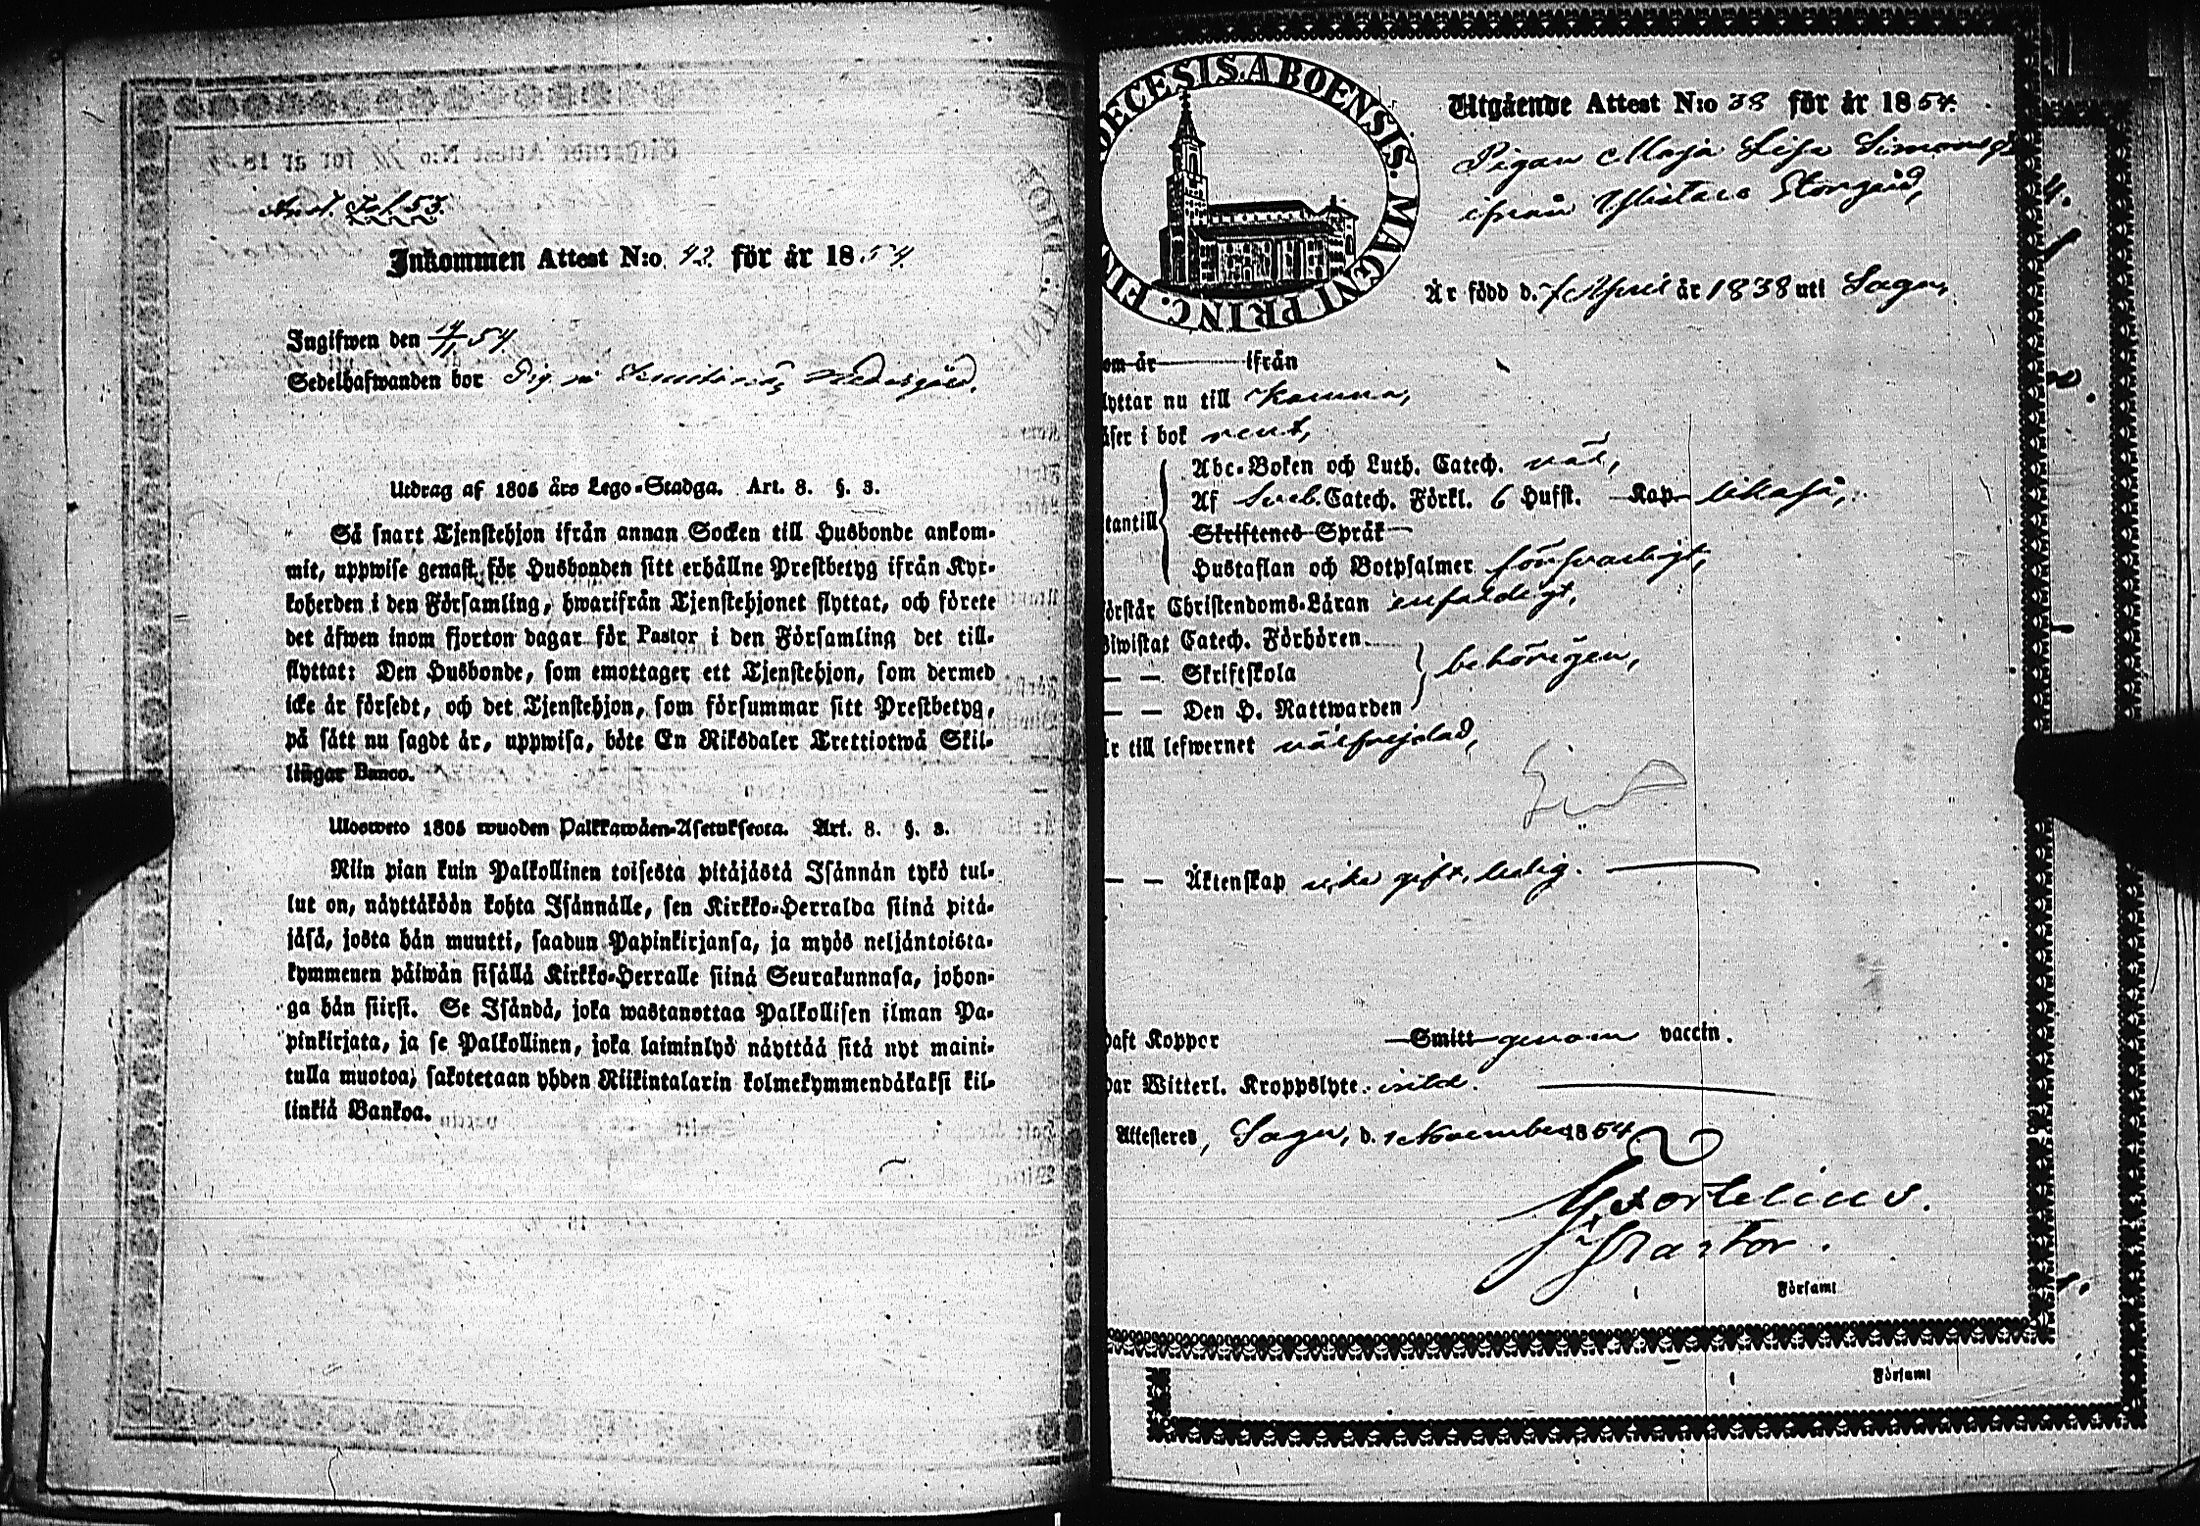 Anst. Fol. 53.
Inkommen Attest N:o 42. för år 1854.
Ingifwen den 14/11 54.
Sedelhafwanden bor Pig. på
Utdrag af 1805 års Lego-Stadga. Art. 8. §. 3.
Så snart Tjenstehjon ifrån annan Socken till Husbonde ankom-
mit, uppwise genast för Husbonden sitt erhållne Prestbetyg ifrån Kyr-
koherden i den Församling, hwarifrån Tjenstehjonet flyttat, och förete
det äfwen inom fjorton dagar för Pastor i den Församling det till-
flyttat: Den Husbonde, som emottager ett Tjenstehjon, som dermed
icke är försedt, och det Tjenstehjon, som försummar sitt Prestbetyg,
på sätt nu sagdt är, uppwisa, böte En Riksdaler Trettiotwå Skil-
lingar Banco.
Ulosweto 1805 wuoden Palkkawäen-Asetuksesta. Art. 8. §. 3.
Niin pian kuin Palkollinen toisesta pitäjästä Isännän tykö tul-
lut on, näyttäköön kohta Isännälle, sen Kirkko-Herralda siinä pitä-
jäsä, josta hän muutti, saadun Papinkirjansa, ja myös neljäntoista-
kymmenen päiwän sisällä Kirkko-Herralle siinä Seurakunnasa, johon-
ga hän siirst. Se Isändä, joka wastanottaa Palkollisen ilman Pa-
pinkirjata, ja se Palkollinen, joka laiminlyö näyttää sitä nyt maini-
tulla muotoa, sakotetaan yhden Riikintalarin kolmekymmendäkaksi kil-
linkiä Bankoa.
DIOECESIS. ABOENSIS. MAGNI PRINC. FIN
Utgående Attest N:o 38 för år 1854.
Pigan Maja Lisa Simonsdr
ifrån Storgård,
Är född d. 7 April år 1838 uti Sagu,
om år ifrån
lyttar nu till Karuna,
äser i bok rent,
Abc-Boken och Luth. Catech. väl,
Af Sveb. Catech. Förkl. 6 Hufst. Kap. likaså,
tantill
Skriftenes Språk
Hustaflan och Botpsalmer försvarligt,
örstår Christendoms-Läran enfaldigt,
biwistat Catech. Förhören
— — Skriftskola behörigen,
— — Den H. Nattwarden
är till lefwernet välfrejdad,
— — Äktenskap icke gift, ledig.
haft Kopper Smitt genom vaccin.
har Witterl. Kroppslyte
Attesteres, Sagu, d. 1 November 1854.
Fortelius.
Pastor.
Församl
Församl